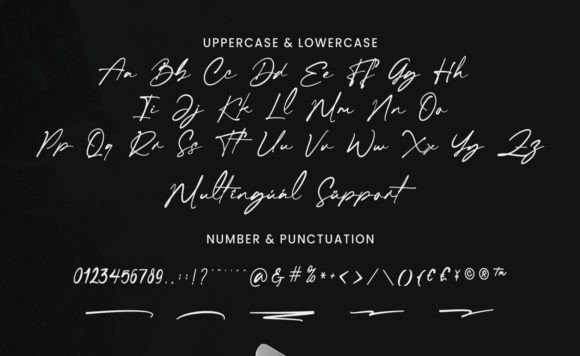 UPPERCASE & LOWERCASE
Aa Bb Cc Dd Ee Ff Gg Hh
Ii Jj Kk Ll Mm Nn Oo
Pp Qq Rr Ss Tt Uu Vv Ww Xx Yy Zz
Multingúal Süpport
NUMBER & PUNCTUATION
0123456789.,:;!?'"'"@&#%*+<>/\(){€£¥©®™